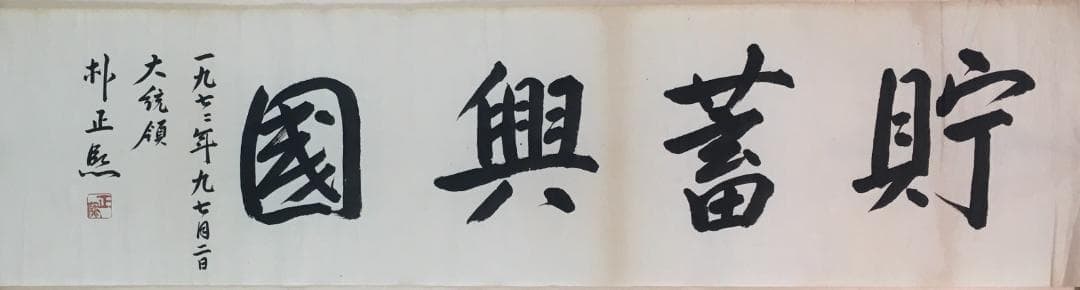 貯蓄興國
一九七二年九七月二日
大統領
朴正熙
正熙